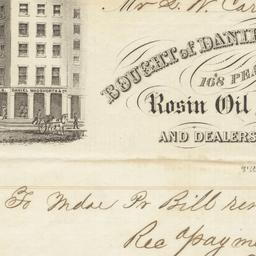 Mr D. W. Car
BOUGHT of DANIE
168 PEA
DANIEL WADSWORTH & CO.
Rosin Oil
AND DEALERS
To Mdse Pr Bill ren
Rec payme